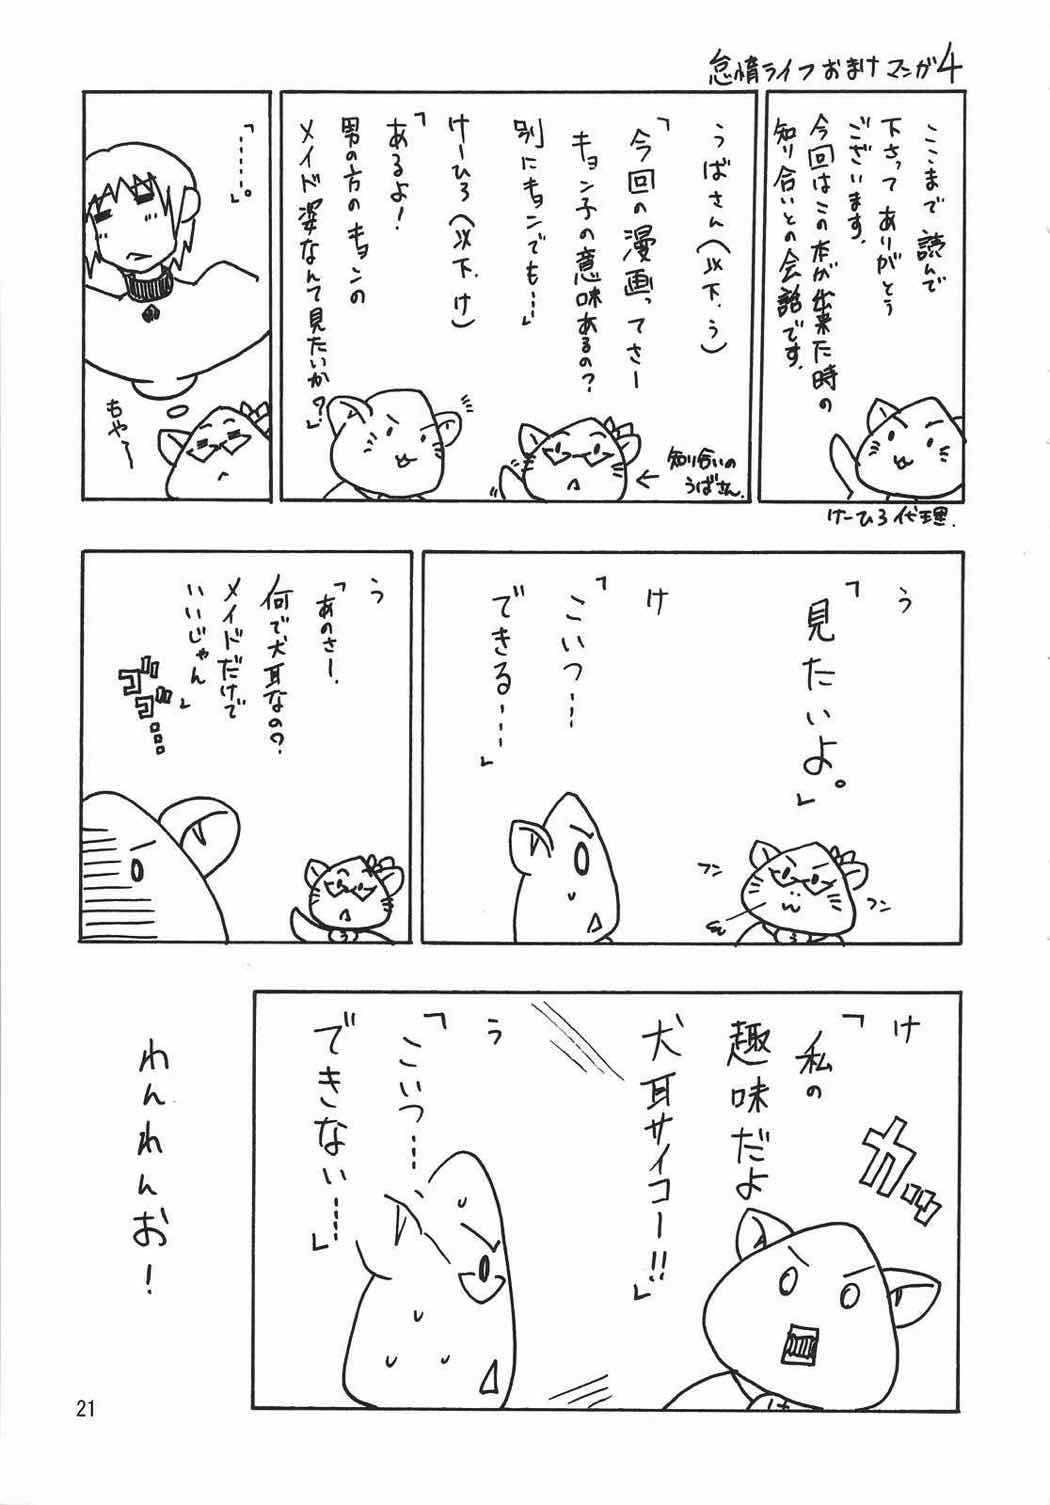 怠惰ライフおまけマンガ4
ここまで読んで
下さってありがとう
ございます。
今回はこの本が出来た時の
知り合いとの会話です。
けーひろ代理.
うばさん(以下、う)
「今回の漫画ってさー
キョン子の意味あるの?
別にキョンでも…」
けーひろ(以下、け)
「あるよ!
男の方のキョンの
メイド姿なんて見たいか?」
知り合いの
うばさん.
「……。」
もやー
う
「見たいよ。」
け
「こいつ…
できる…」
フン
フン
う
「あのさー、
何で犬耳なの?
メイドだけで
いいじゃん」
ゴゴゴゴ…
う
け
「私の
趣味だよ
犬耳サイコー!!」
カッ
う
「こいつ…
できない…」
け
わんわんお!
21